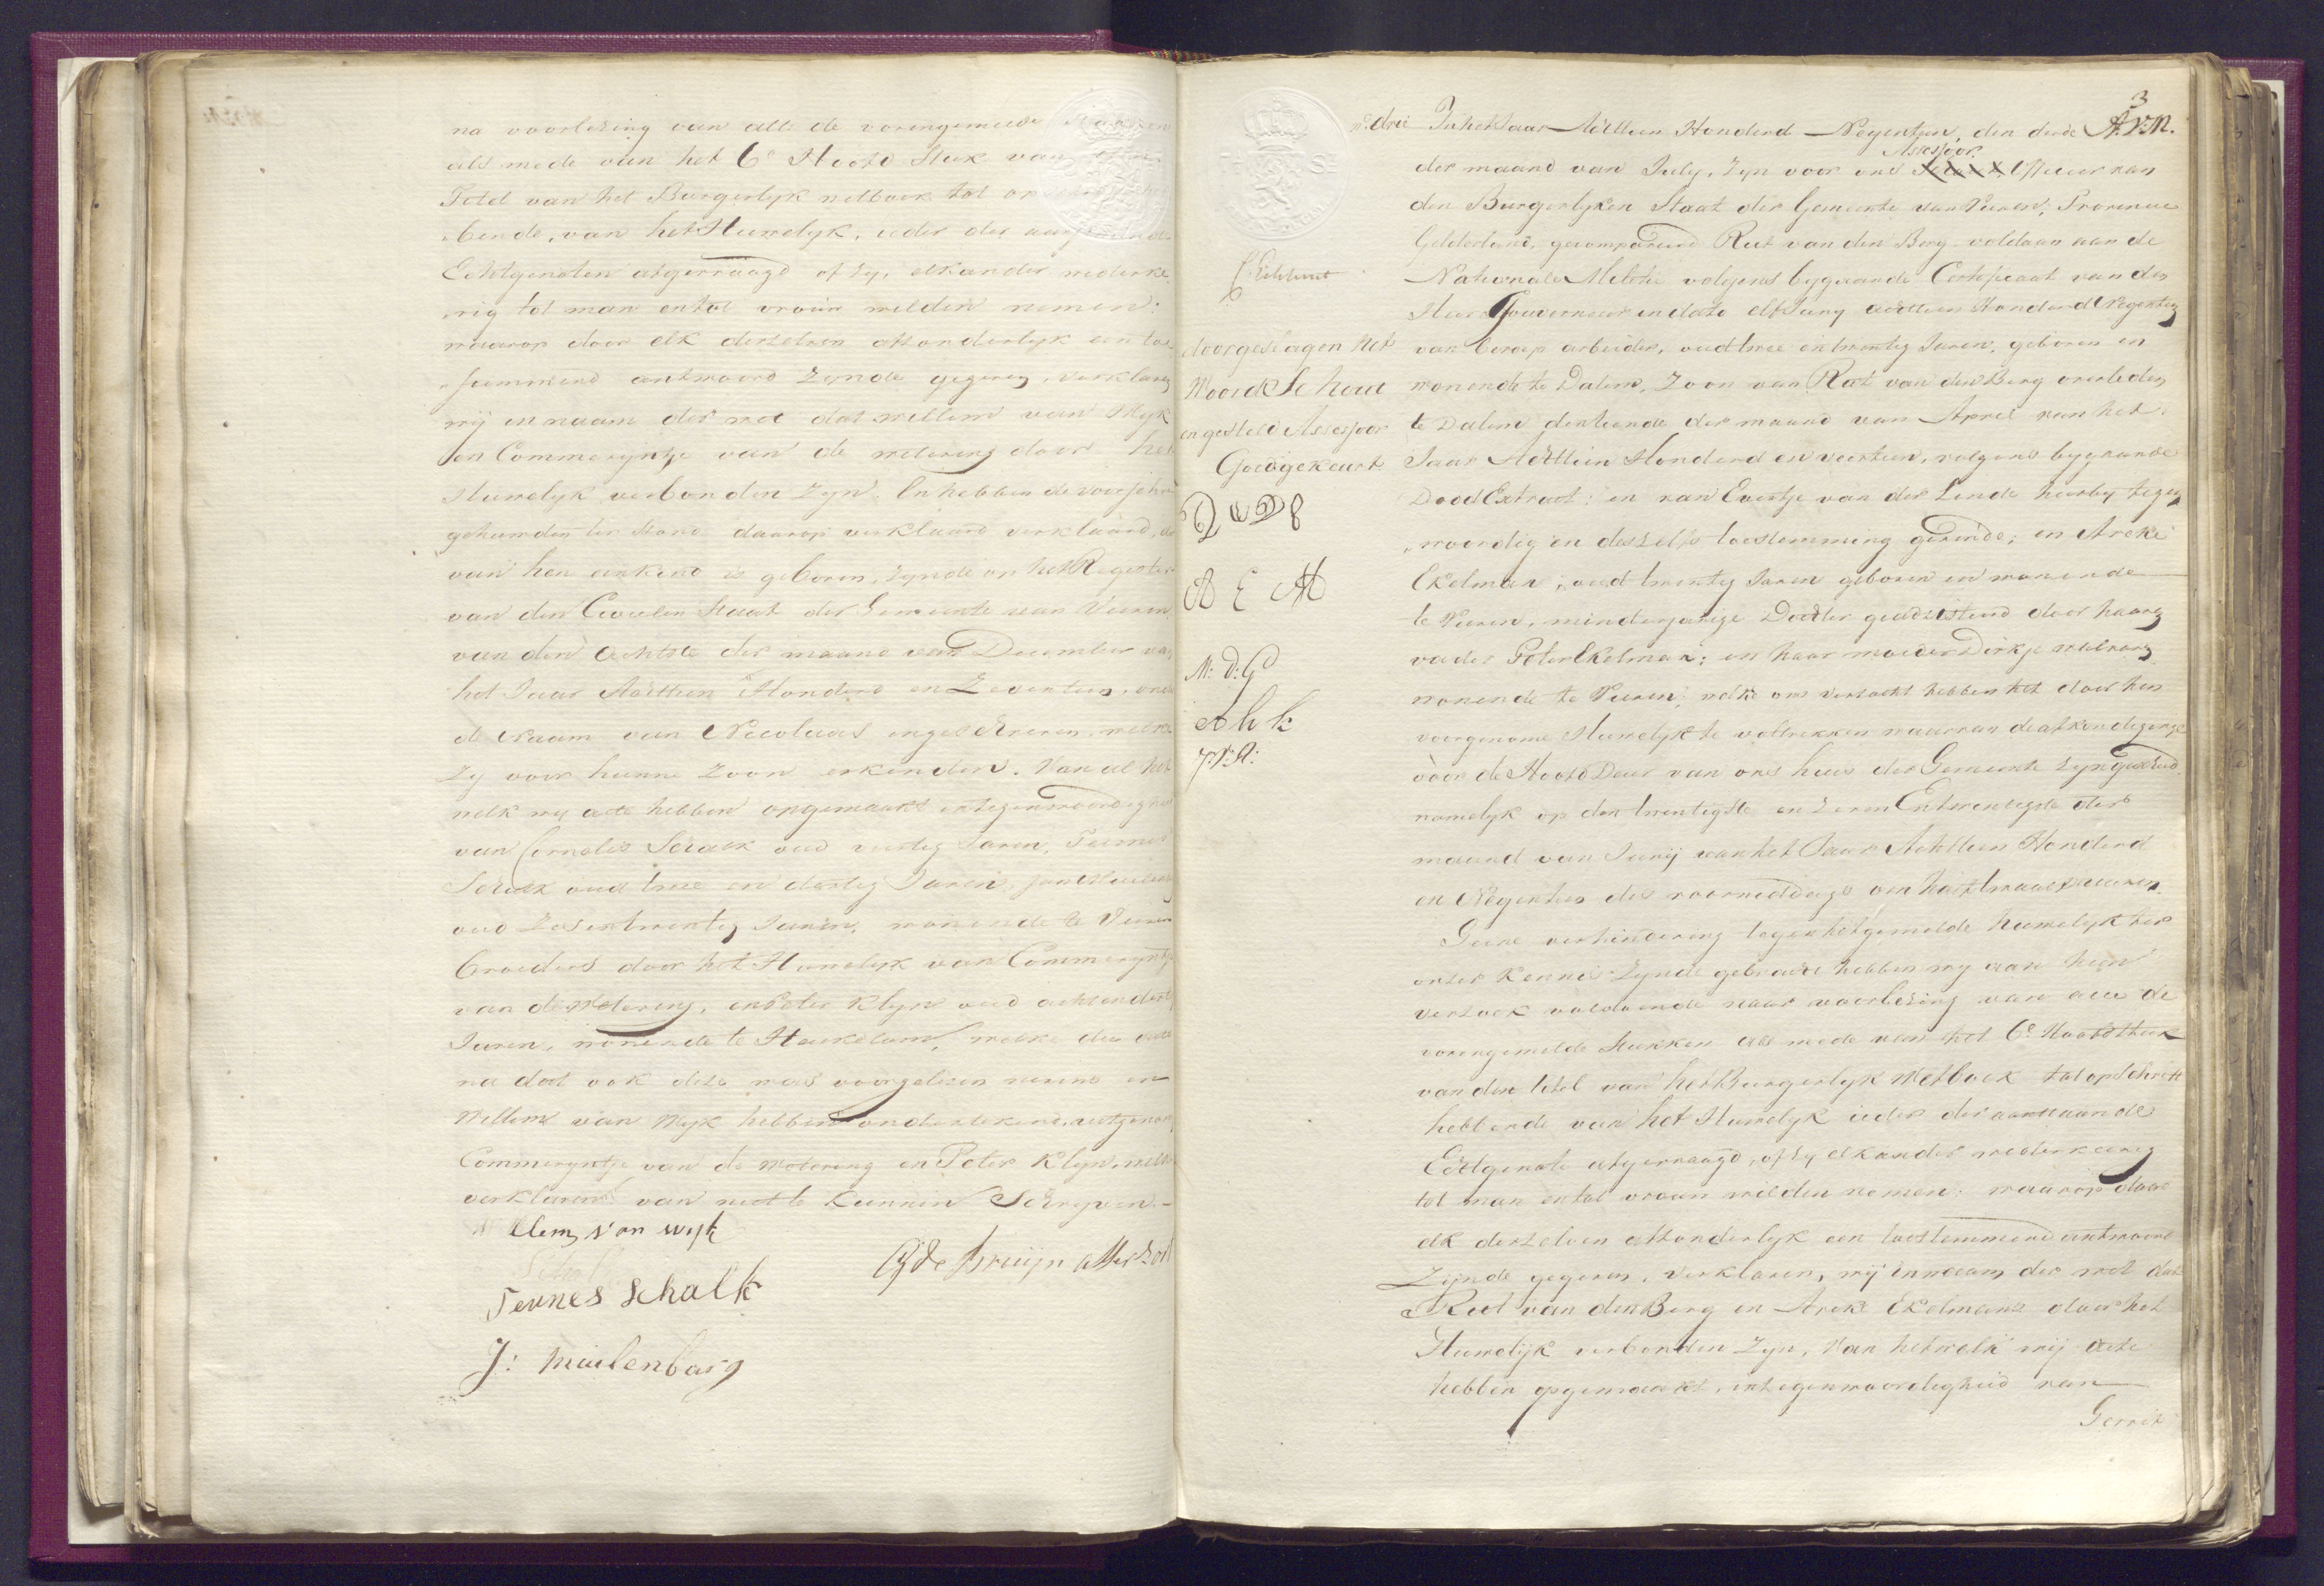 na voorlezing van alle de vorengemelde stukken
als mede van het 6e Hoofd Stuk van den
Titel van het Burgerlyk wetboek tot opschrift heb
bende, van het Huwelyk, ieder der aanstaande
Echtgenoten afgevraagd of zy, elkander wederke
rig tot man en tot vrouw wilden nemen:
waarop door elk derzelven afzonderlyk een toe
stemmend antwoord zynde gegeven, verklaren
wij in naam der wet dat willem van Wyk
en Commeryntje van de wetering door het
Huwelyk verbonden zyn. En hebben de voorschr
gehuwden ter stond daarop verklaard verklaard, 
van hen erkend is geboren, zynde op het Register
van den Civielen Staat der Gemeente van Vuren
van den achtste der maand van December va
het Jaar Achttien Honderd en Zeventien, onder
de Naam van Nicolaas ingeschreven, welke
zy voor hunne zoon erkenden. Van al het
welk wy acte hebben opgemaakt in tegenwoordighei
van Cornelis Schalk oud veertig Jaren, Teunes
Schalk oud twee en dertig Jaren, Jan Muilenb
oud Zes en twintig Jaren, wonende te Vuren
Broeders door het Huwelyk van Commeryntje
van de Wetering, en Peter Klyn oud acht en dert
Jaren, wonende te Heukelum, welke dez acte
na dat ook deze was voorgelezen nevens en
Willem van Wyk hebben ondertekend, uitgenom
Commeryntje van de Wetering en Peter Klyn, welk
verklarend van niet te kunnen Schryven.-
Willem van wyk
Teunes Schalk
G: de Bruijn assessor
J: Muilenburg
3
No. drie In het Jaar Achttien Honderd Negentien, den derde A.V.N.
Assessoor
der maand van July, zyn voor ons Schout, Officier van
den Burgerlyken Staat der Gemeente van Vuren, Provincie
Gelderland, gecompareerd Rut van den Berg voldaan aan de
Nationale Melitie volgens bygaande Certificaat van den
Heer Gouverneur in dato elf Juny achttien Honderd Negentien
van beroep arbeider, oud twee en twintig Jaren, geboren en
wonende te Dalem, Zoon van Rut van den Berg overleden
te Dalem den tiende der maand van April van het
Jaar Achttien Honderd en veertien, volgens bygaande
Dood Extract: en van Evertje van der Linde hierby tegen
woordig en deszelfs toestemming gevende; en Areke
Ekelman, oud twintig Jaren geboren en wonende
te Vuren, minderjarige Dochter geadsisteerd door haaren
vader Peter Ekelman; en haar moeder Dirkje
wonende te Vuren, welke ons verzocht hebben het door hen
voorgenome Huwelyk te voltrekken waarvan de afkondiginge
voor de Hoofd Deur van ons huis der Gemeente zyn geschied
namelyk op den twintigste en zeven En twentigste der
maand van Junij van het Jaar Achttien Honderd
en Negentien des voormiddags om half twaalf uuren.
Geene verhindering tegen het gemelde huwelyk ter
onzer kennis zynde gebracht hebben wy aan hun
verzoek voldoende naar voorlezing van alle de
vorengemelde stukken als mede van het 6e Hoofdstuk
van den titel van het Burgerlyk Wetboek tot opschrift
hebbende van het Huwelyk ieder der aanstaande
Echtgenote afgevraagd, of zy elkander wederkeerig
tot man en tot vrouw wilden nemen: waarop door
elk derzelven afzonderlyk een toestemmend antwoord
Zijnde gegeven, verklaren, wij in naam der wet dat
Rut van den Berg en Areke Ekelman door het
Huwelijk verbonden zyn, Van hetwelk wij acte
hebben opgemaakt, in tegenwoordigheid van
Gerrit
doorgeslagen het
Woord Schout
en gesteld Assessoor
Goedgekeurt
A E M
M: d: G
A h k
J: V: A: